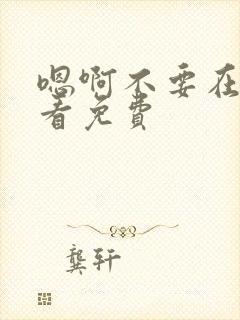 嗯啊不要在
看免费
龚轩